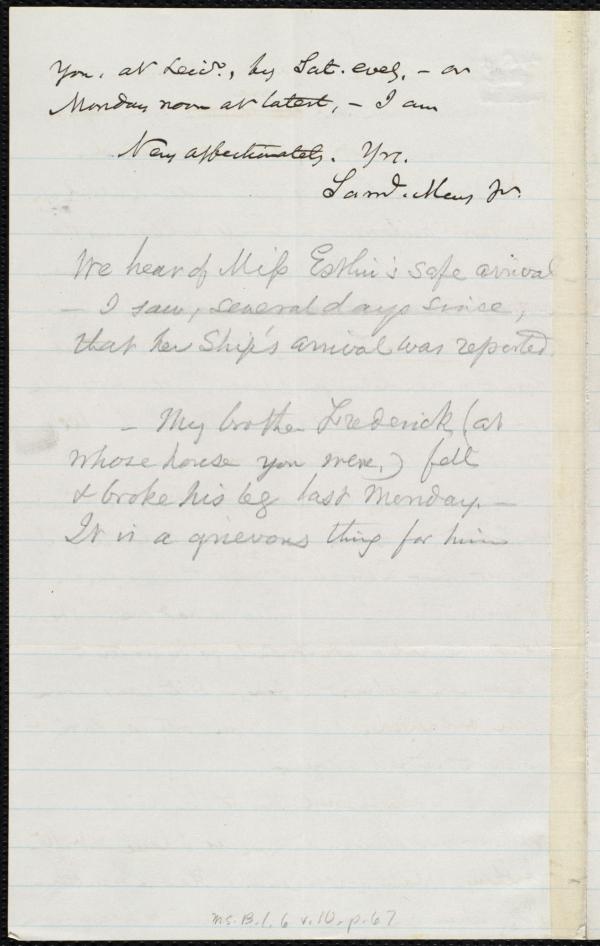 you, at Leicr., by Sat. eveg, – or
Monday noon at latest, – I am
Very affectionately. Yrs.
Saml. May Jr.
We hear of Miss Estlin's safe arrival
– I saw, several days since,
that her Ship's arrival was reported.
– My brother Frederick (at
whose house you were,) fell
& broke his leg last Monday. –
It is a grievous thing for him
Ms.B.1.6 v.10, p.67